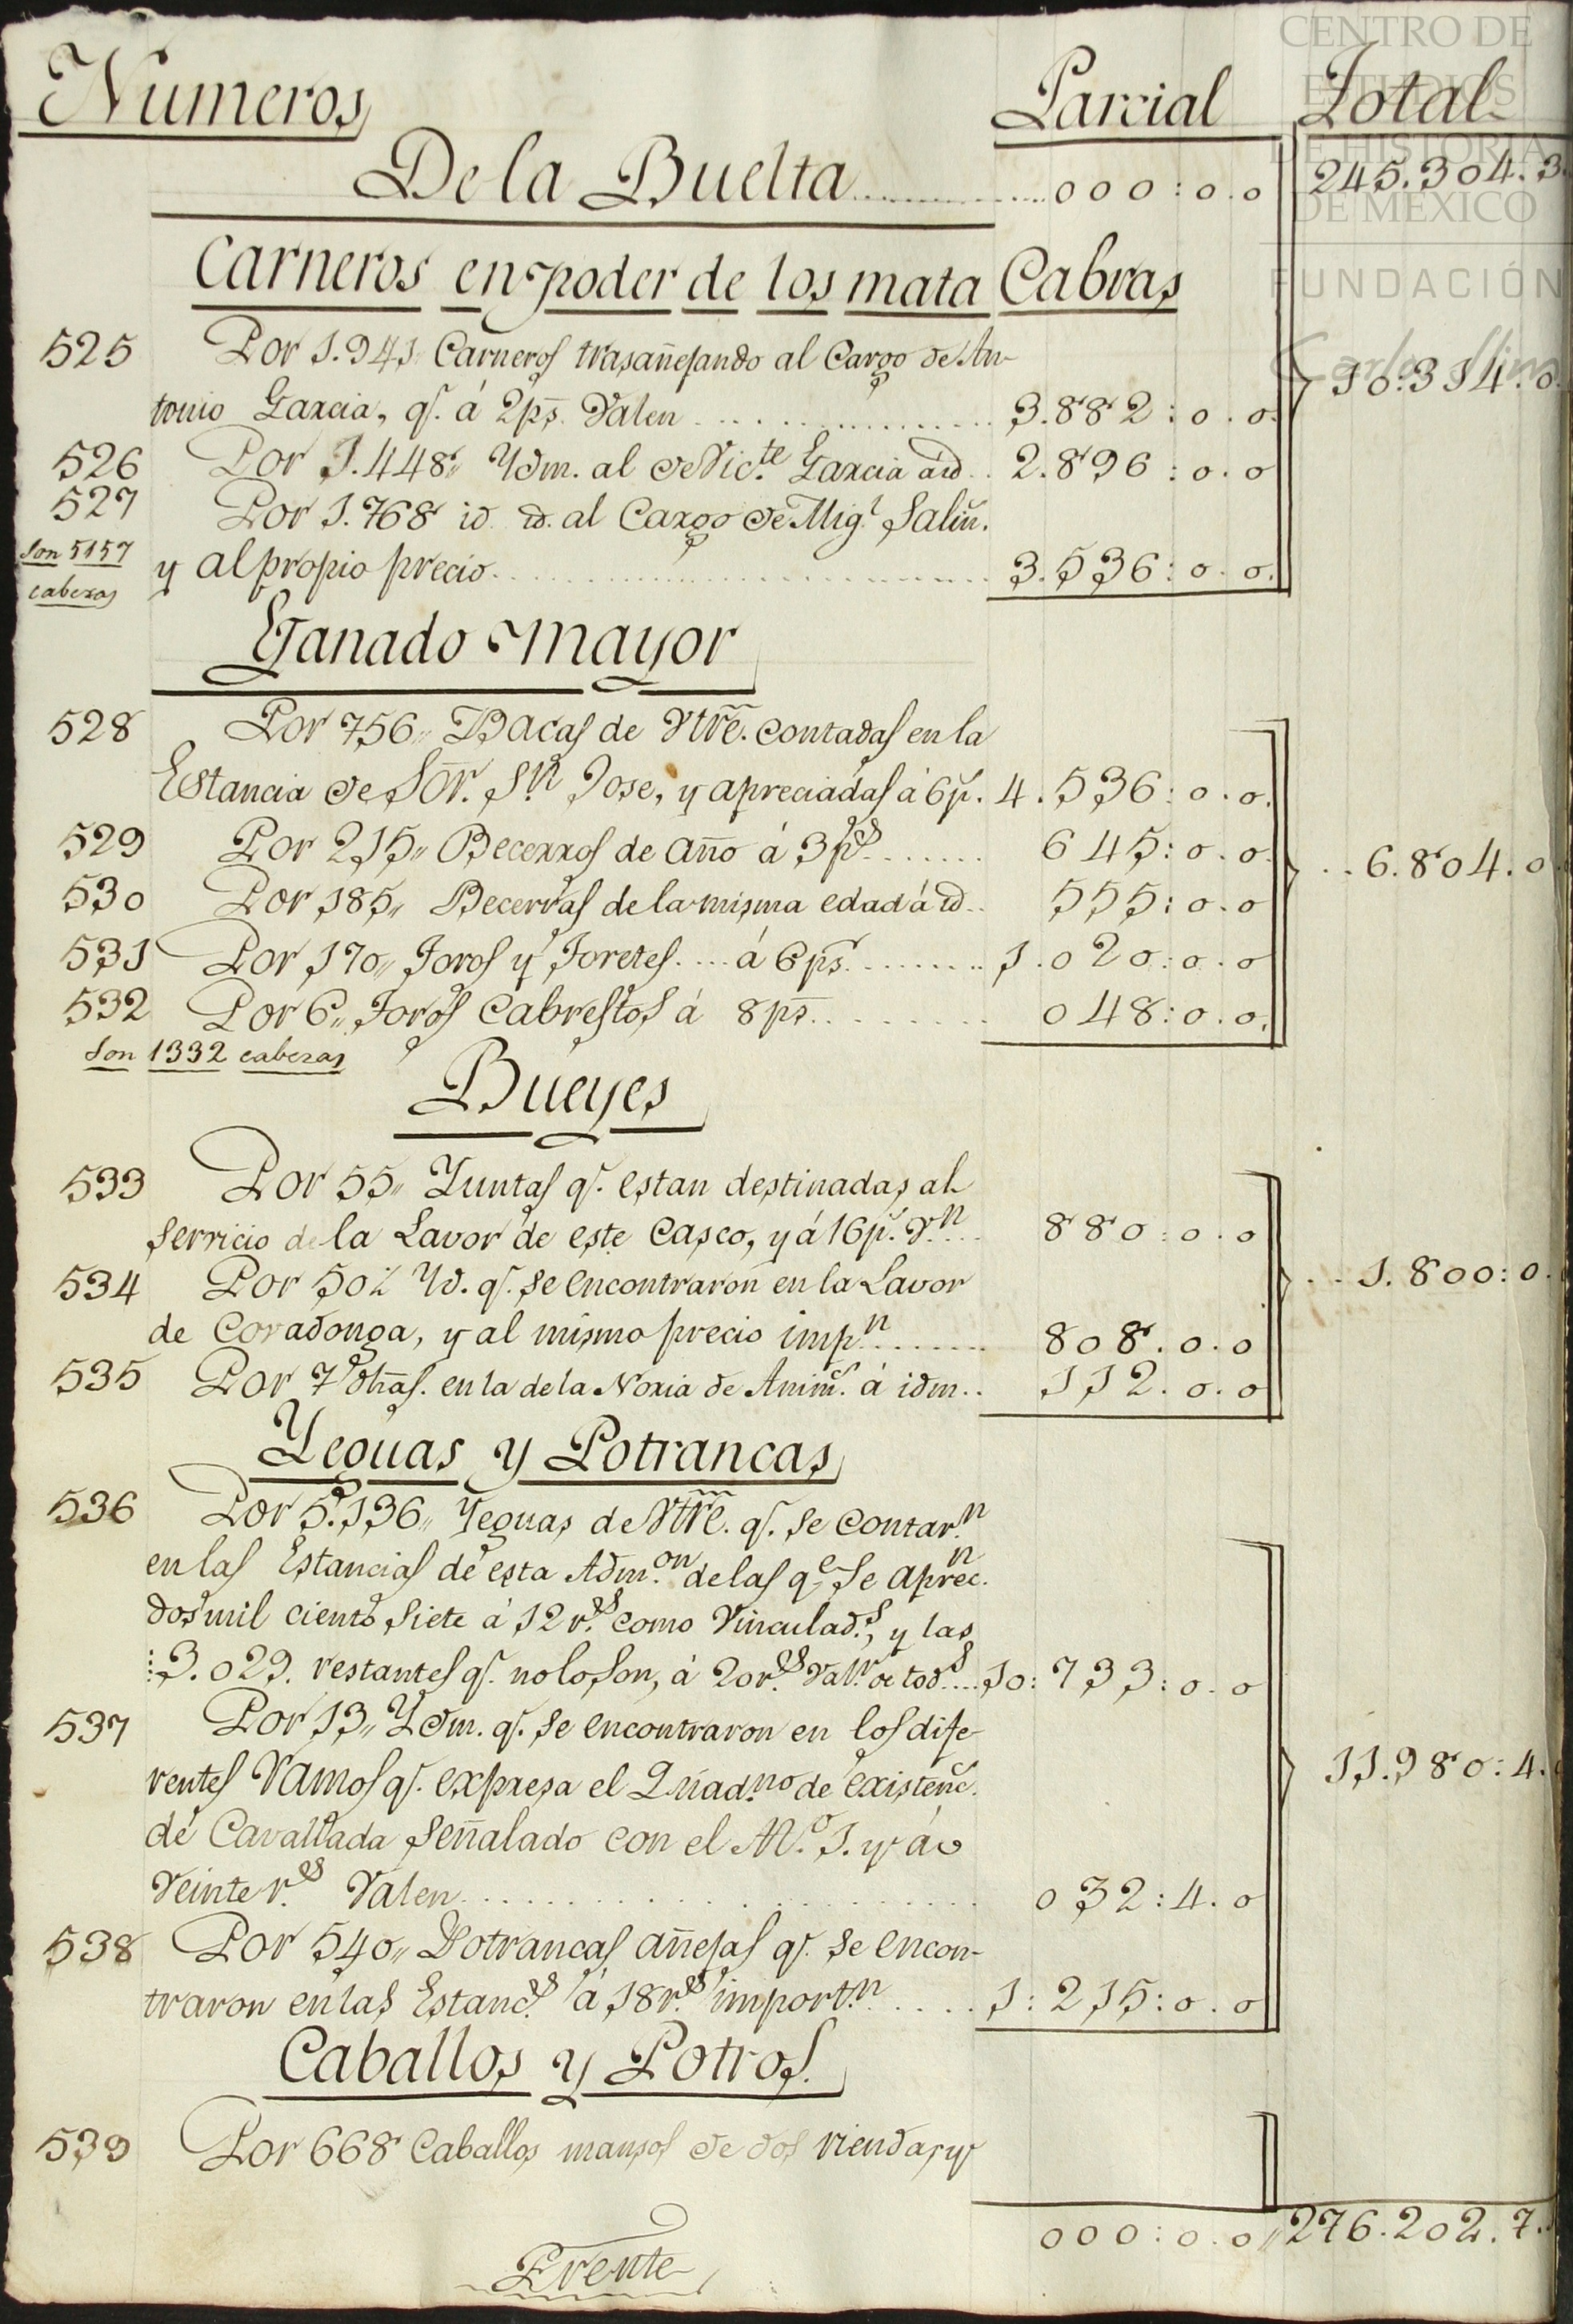 CENTRO DE
ESTUDIOS
DE HISTORIA
DE MEXICO
FUNDACIÓN
Carlos Slim
Numeros Parcial Total
De la Buelta 000:0.0 245.304.3
Carneros en poder de los mata Cabras
525 Por 1.941 Carneros trasañejando al Cargo de An-
tonio Garcia, qs. á 2ps. Valen 3.882:0.0. 10:314.0
526 Por 1.448,, Ydm. al de Victe. Garcia á id.. 2.896:0.0
527 Por 1.768 id. id. al Cargo de Migl. Salin.
Son 5157 cabezas
y al propio precio 3.536:0.0.
Ganado mayor
528 Por 756,, Bacas de Vtre. contadas en la
Estancia de Sor. Sn. Jose, y apreciadas á 6p. 4.536:0.0.
529 Por 215,, Becerros de año á 3ps. 645:0.0. ..6.804.0
530 Por 185,, Becerras de la misma edad á id.. 555:0.0
531 Por 170,, Toros y Toretes....á 6ps. 1.020:0.0
532 Por 6,, Toros Cabrestos á 8ps. 048:0.0.
Son 1332 cabezas
Bueyes
533 Por 55,, Yuntas qs. estan destinadas al
servicio de la Lavor de este Casco, y á 16p. Vn. 880:0.0
534 Por 50½ Yd. qs. se encontraron en la Lavor ..1.800:0.
de Covadonga, y al mismo precio impn. 808.0.0
535 Por 7 otras. en la de la Noria de Anims. á idm.. 112.0.0
Yeguas y Potrancas
536 Por 5.136,, Yeguas de Vtre. qs. se contarn.
en las Estancias de esta Admon. de las qe. se aprec.n
dos mil ciento siete á 12 rs. como Vinculads., y las
3.029. restantes qs. no lo son, á 20 rs. Valr. de tods. 10:733:0.0
537 Por 13,, Ydm. qs. se encontraron en los dife-
rentes ramos qs. expresa el Quadno. de existenc. 11.980:4.
de Cavallada señalado con el No. 1. y á
veinte rs. Valen 032:4.0
538 Por 540,, Potrancas añejas qs. se encon-
traron en las Estancs. á 18 rs. importn. 1:215:0.0
Caballos y Potros.
539 Por 668 Caballos mansos de dos riendas y
000:0.0 276.202.7.
Frente